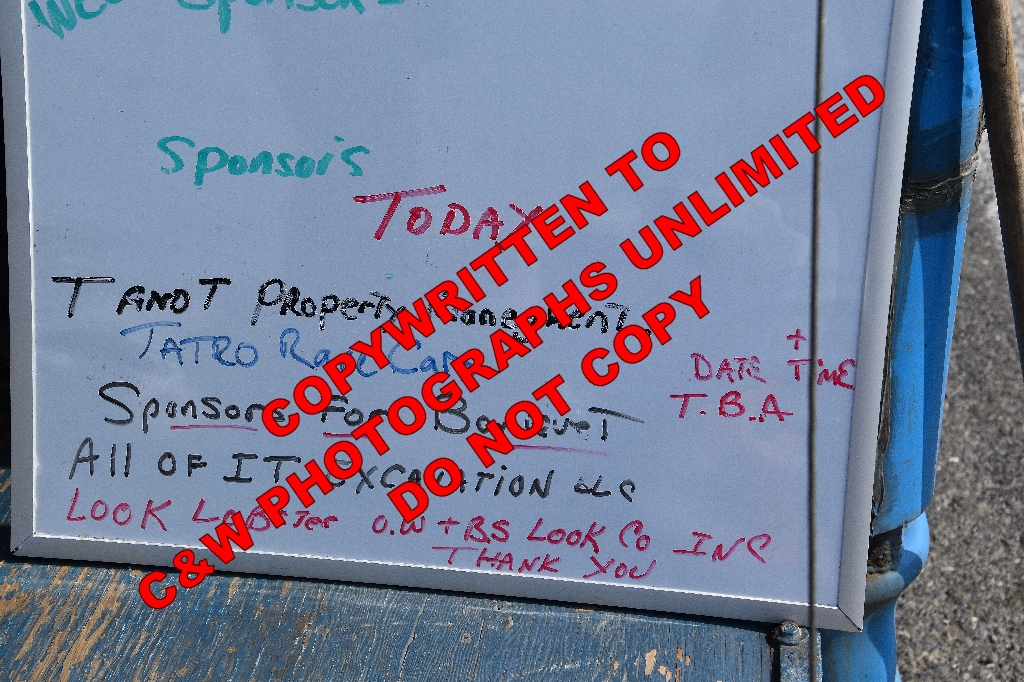 Sponsors
TODAY
T AND T Property Management
TATRO Race Cars
DATE + TIME
T.B.A
Sponsors For Banquet
All OF IT EXCAVATION LLC
LOOK Lobster O.W + BS LOOK Co INC
THANK YOU
COPYWRITTEN TO
C&W PHOTOGRAPHS UNLIMITED
DO NOT COPY